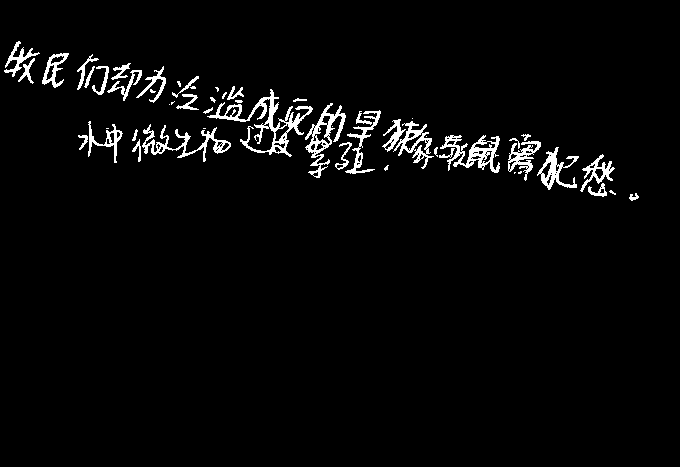 牧民们却为泛滥成灾的旱獭鼠犯愁。
水中微生物过度繁殖，